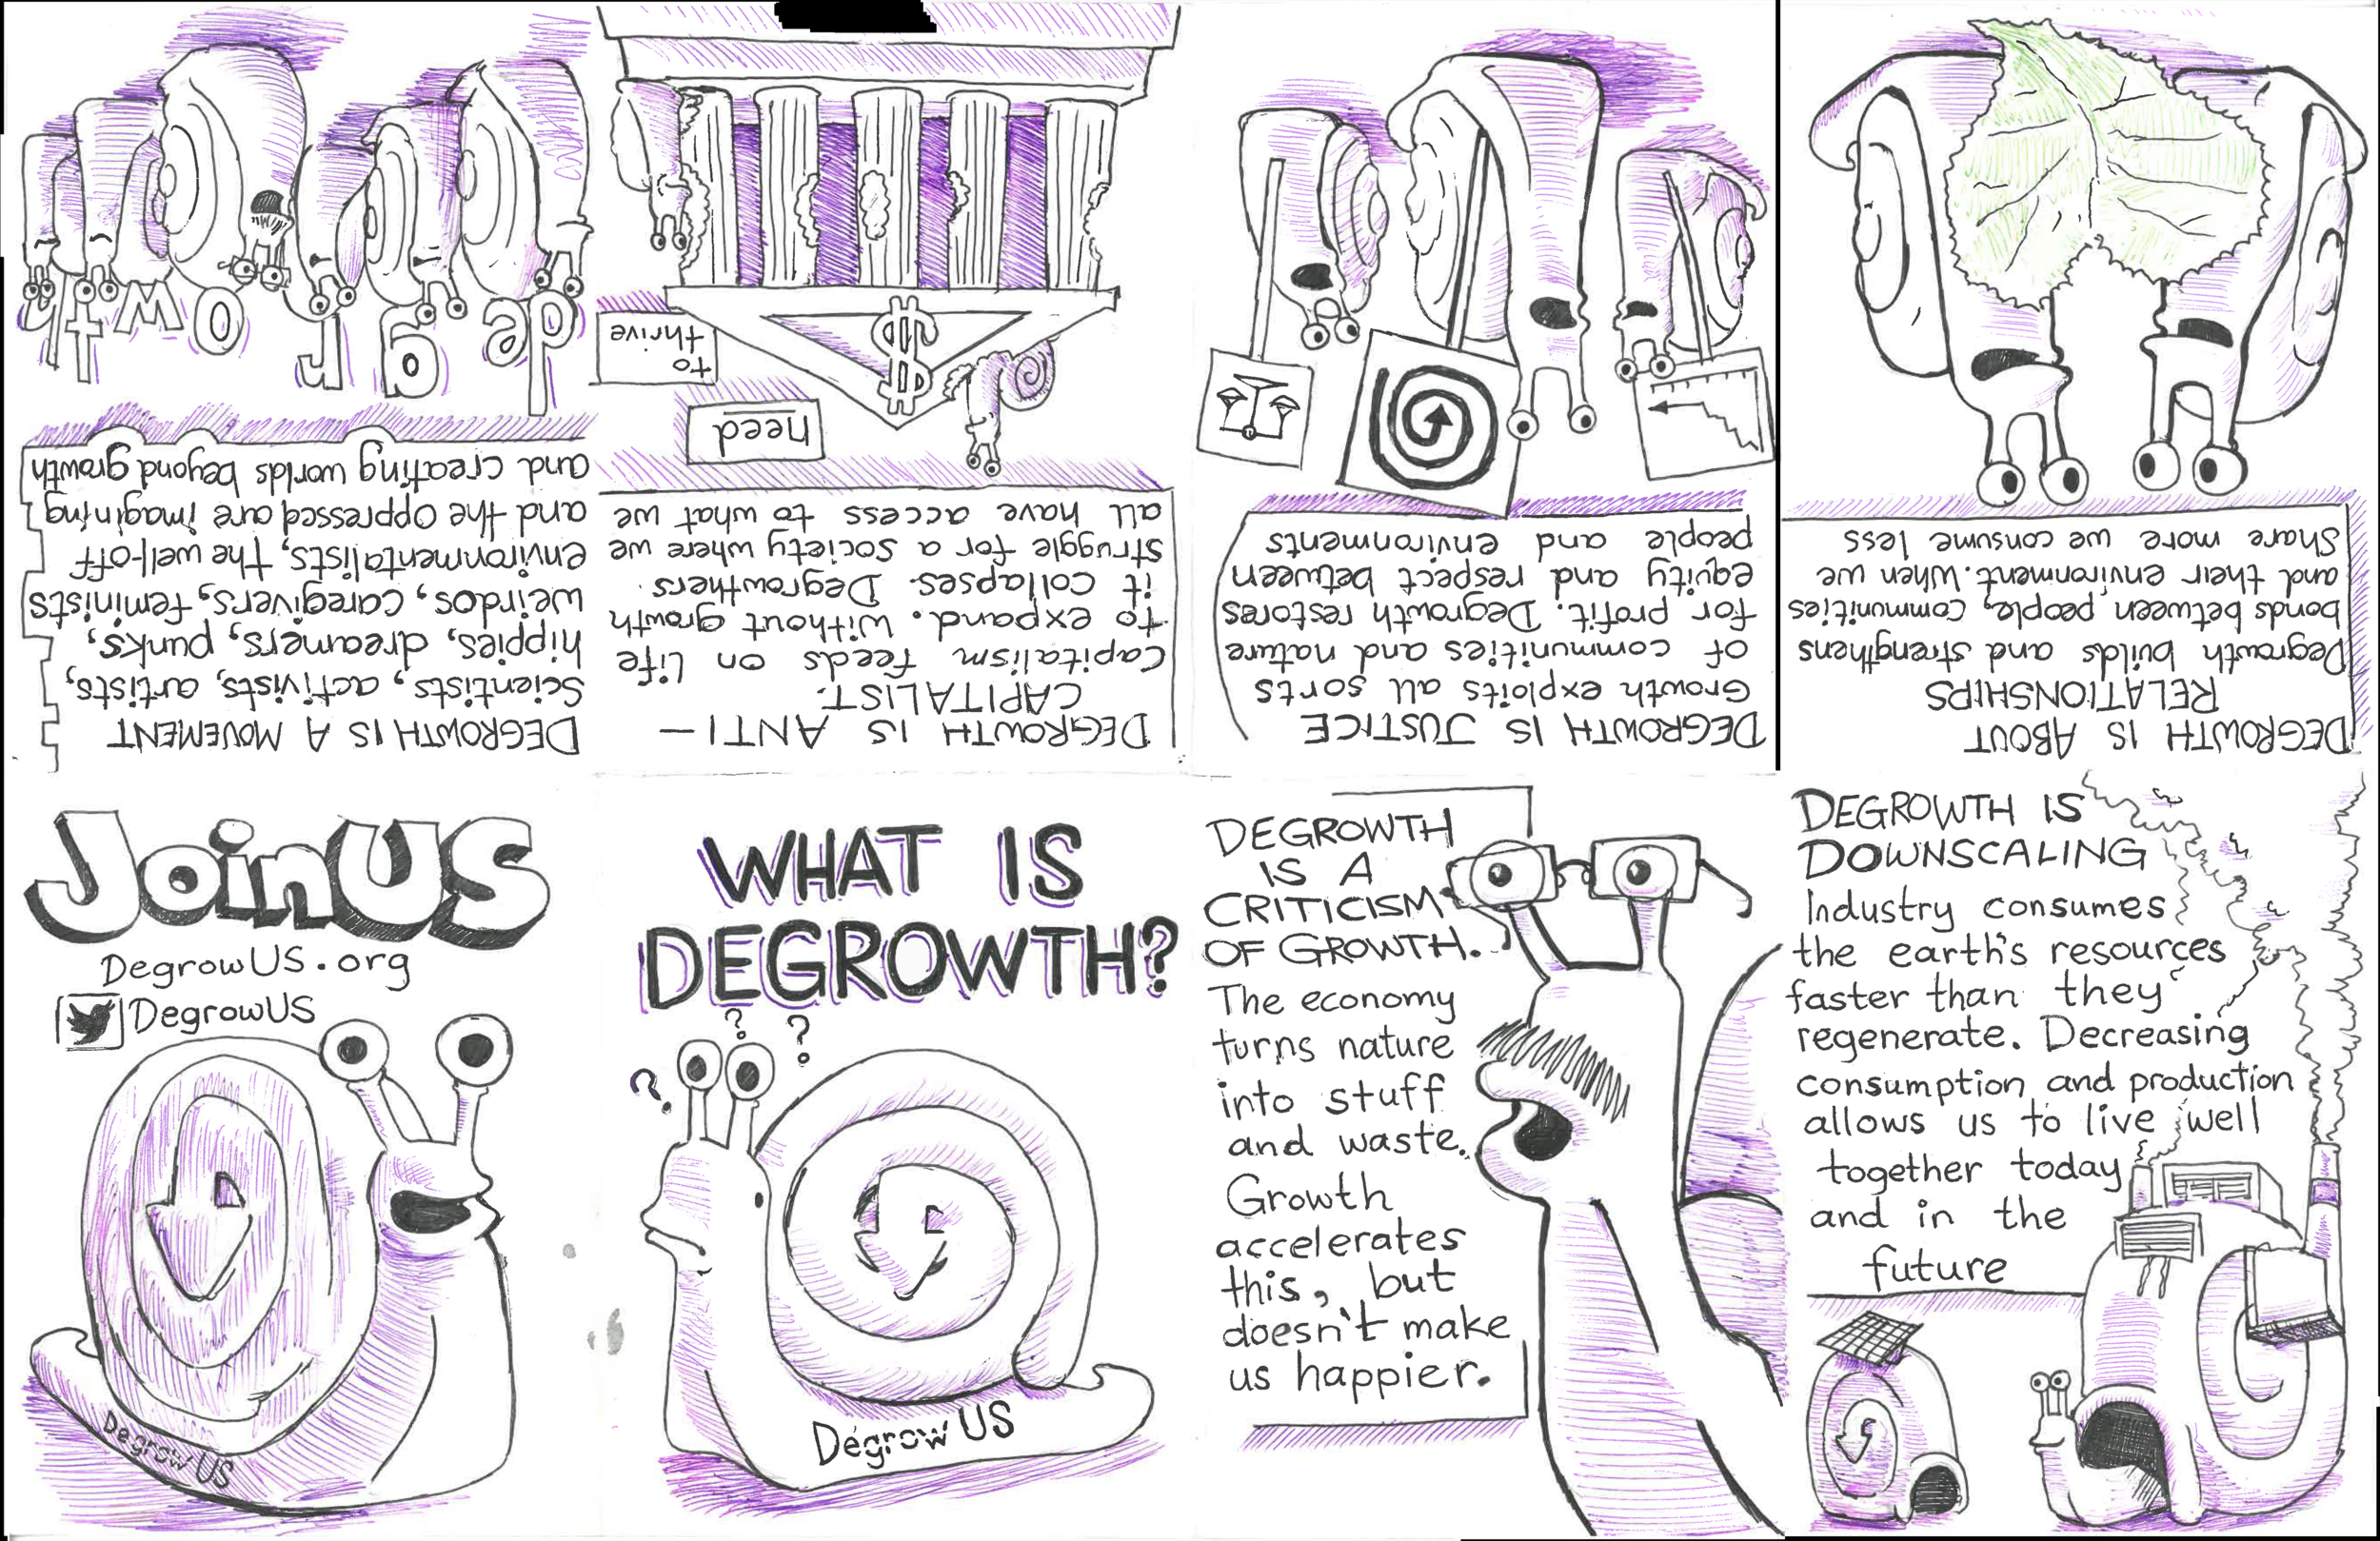 WHAT IS
DEGROWTH?
? ? ?
Degrow US
DEGROWTH
IS A
CRITICISM
OF GROWTH.
The economy
turns nature
into stuff
and waste.
Growth
accelerates
this, but
doesn't make
us happier.
DEGROWTH IS
DOWNSCALING
Industry consumes
the earth's resources
faster than they
regenerate. Decreasing
consumption and production
allows us to live well
together today
and in the
future
DEGROWTH IS ABOUT
RELATIONSHIPS
Degrowth builds and strengthens
bonds between people, communities
and their environment. When we
Share more we consume less
DEGROWTH IS JUSTICE
Growth exploits all sorts
of communities and nature
for profit. Degrowth restores
equity and respect between
people and environments
DEGROWTH IS ANTI-
CAPITALIST.
Capitalism feeds on life
to expand. Without growth
it collapses. Degrowthers
struggle for a society where we
all have access to what we
need
to
thrive
$
DEGROWTH IS A MOVEMENT
Scientists, activists, artists,
hippies, dreamers, punks,
weirdos, caregivers, feminists
environmentalists, the well-off
and the oppressed are imagining
and creating worlds beyond growth
de g r o w t h
Join US
DegrowUS.org
DegrowUS
Degrow US